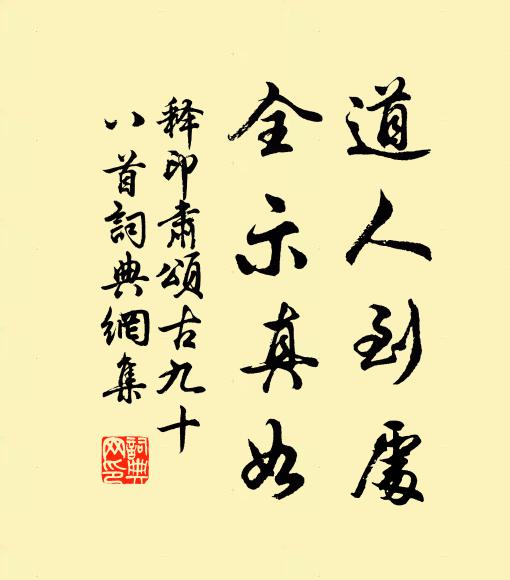 道人到處
全示真如
释印肅頌古九十
八首詞典網集
詞典網印